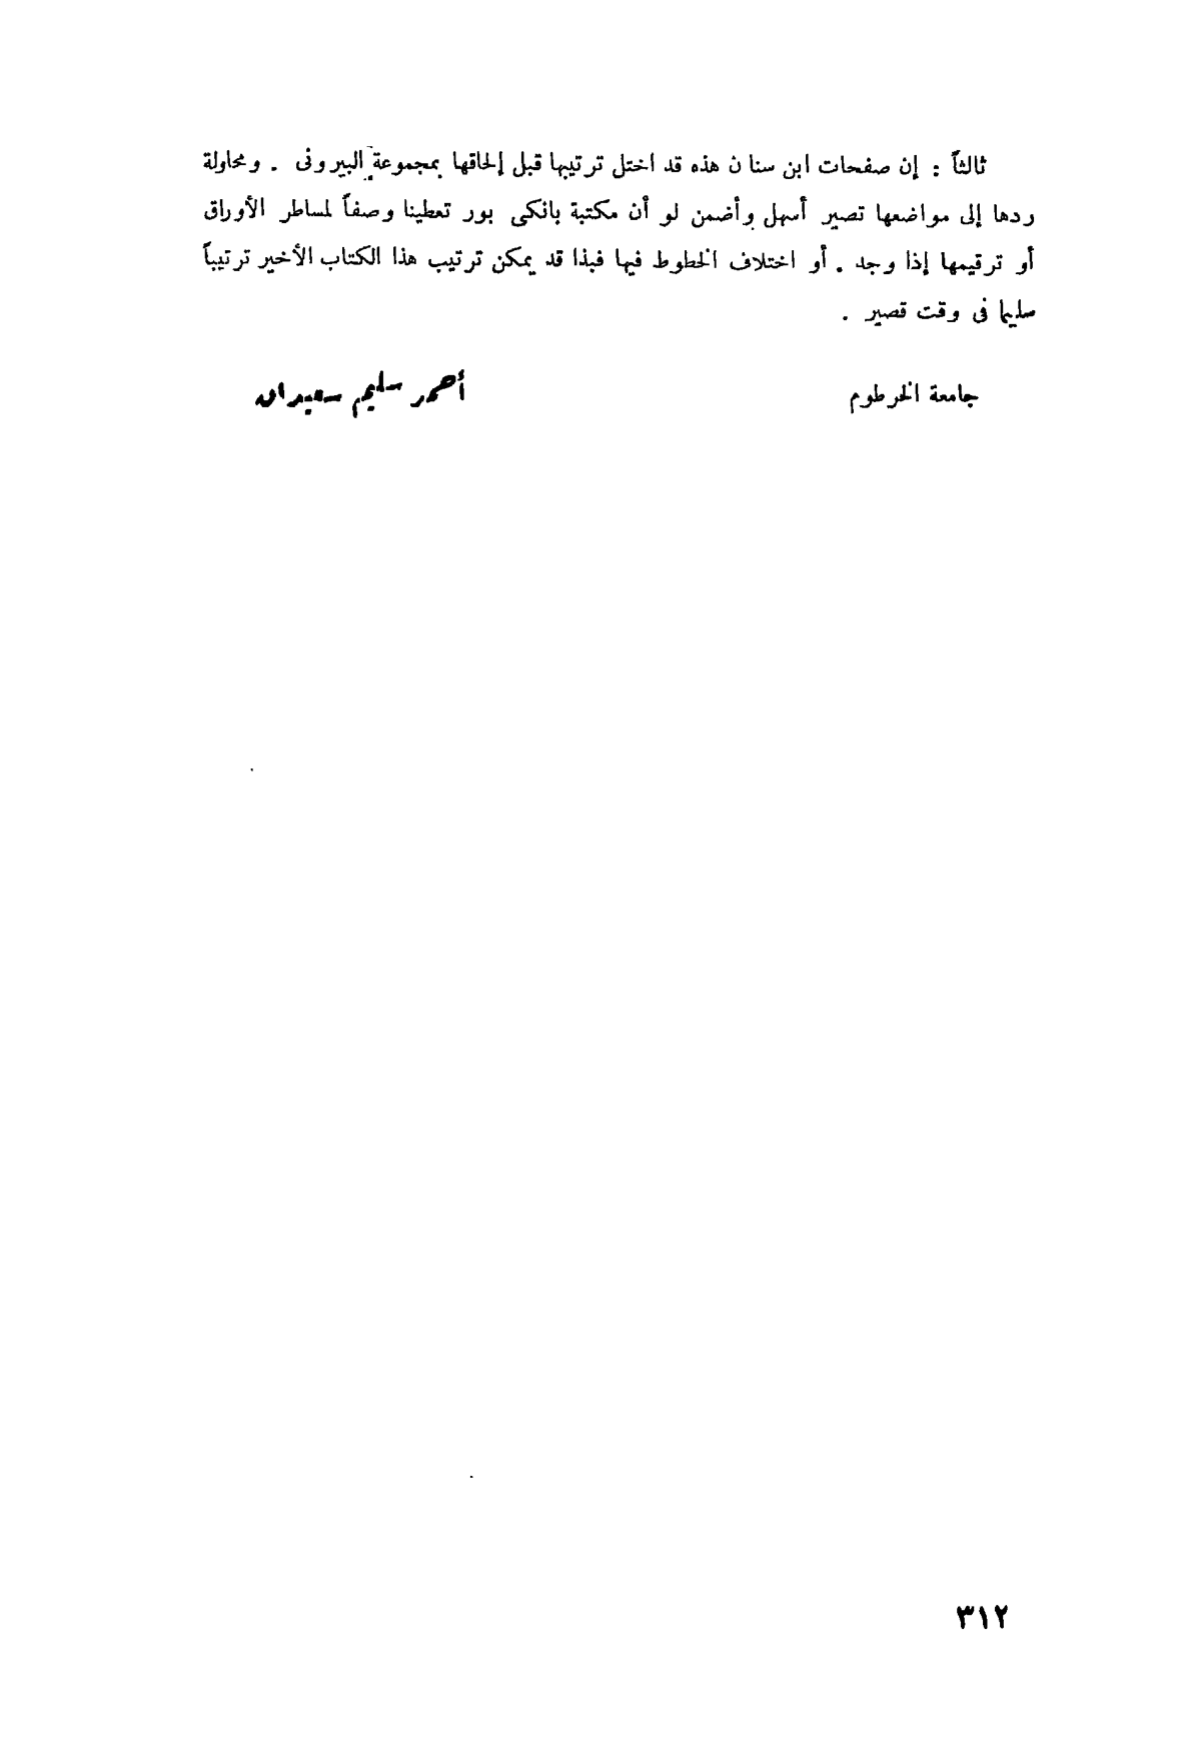 ثالثاً : إن صفحات ابن سنان هذه قد اختل ترتيبها قبل إلحاقها بمجموعة البيرونى . ومحاولة
ردها إلى مواضعها تصير أسهل وأضمن لو أن مكتبة بانكى بور تعطينا وصفاً لمساطر الأوراق
أو ترقيمها إذا وجد . أو اختلاف الخطوط فيها فبذا قد يمكن ترتيب هذا الكتاب الأخير ترتيباً
سليما فى وقت قصير .
جامعة الخرطوم
أحمد سليم سعيدان
٣١٢